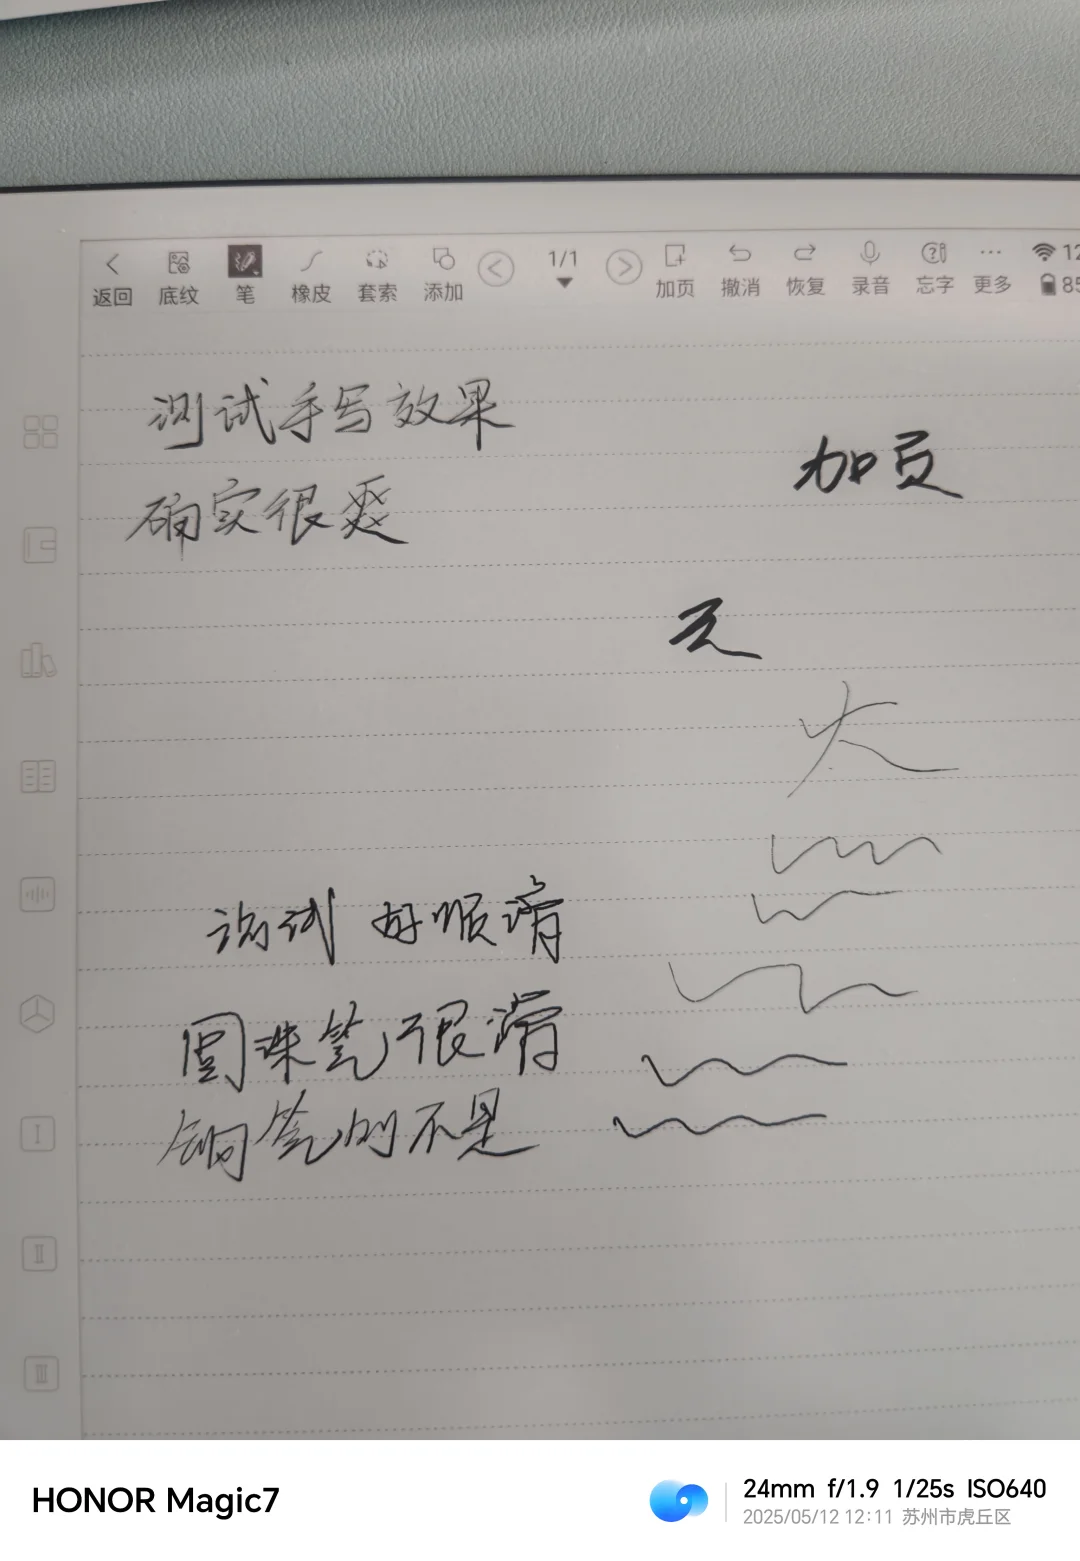 返回 底纹 笔 橡皮 套索 添加 1/1 加页 撤消 恢复 录音 忘字 更多 12
85
测试手写效果
加页
确实很爽
天
大
测试 好顺滑
圆珠笔很滑
钢笔的不是
I
II
III
HONOR Magic7
24mm f/1.9 1/25s ISO640
2025/05/12 12:11 苏州市虎丘区